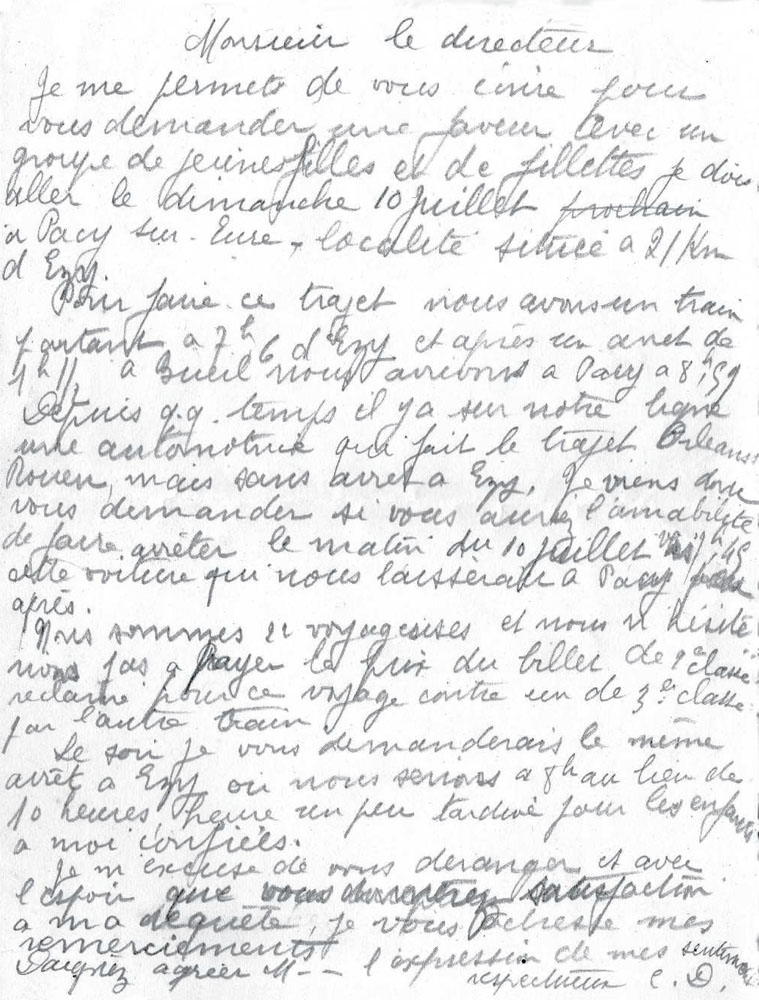 Monsieur le directeur
Je me permets de vous écrire pour
vous demander une faveur Avec un
groupe de jeunes filles et de fillettes je dois
aller le dimanche 10 juillet prochain
à Pacy sur-Eure, localité située à 21 Km
d Ezy.
Pour faire ce trajet nous avons un train
partant à 7h 6 d'Ezy et après un arret de
1h 11 à Bueil nous arrivons à Pacy à 8h,59
Depuis q.q. temps il y a sur notre ligne
une automotrice qui fait le trajet Orleans
Rouen, mais sans arret a Ezy. Je viens donc
vous demander si vous auriez l'amabilité
de faire arrêter le matin du 10 juillet vers 45
cette voiture qui nous laisserait a Pacy
après.
Nous sommes 22 voyageuses et nous n hésite
rions pas a payer le prix du billet de 2e classe
réclamé pour ce voyage contre un de 3e classe
par l'autre train
Le soir je vous demanderais le même
arrêt a Ezy où nous serions a 8h au lieu de
10 heures heure un peu tardive pour les enfants
a moi confiées.
Je m'excuse de vous déranger et avec
l'espoir que vous donnerez satisfaction
a ma requête, je vous adresse mes
remerciements
Daignez agréer M-- l'expression de mes sentiments
respectueux C. D.